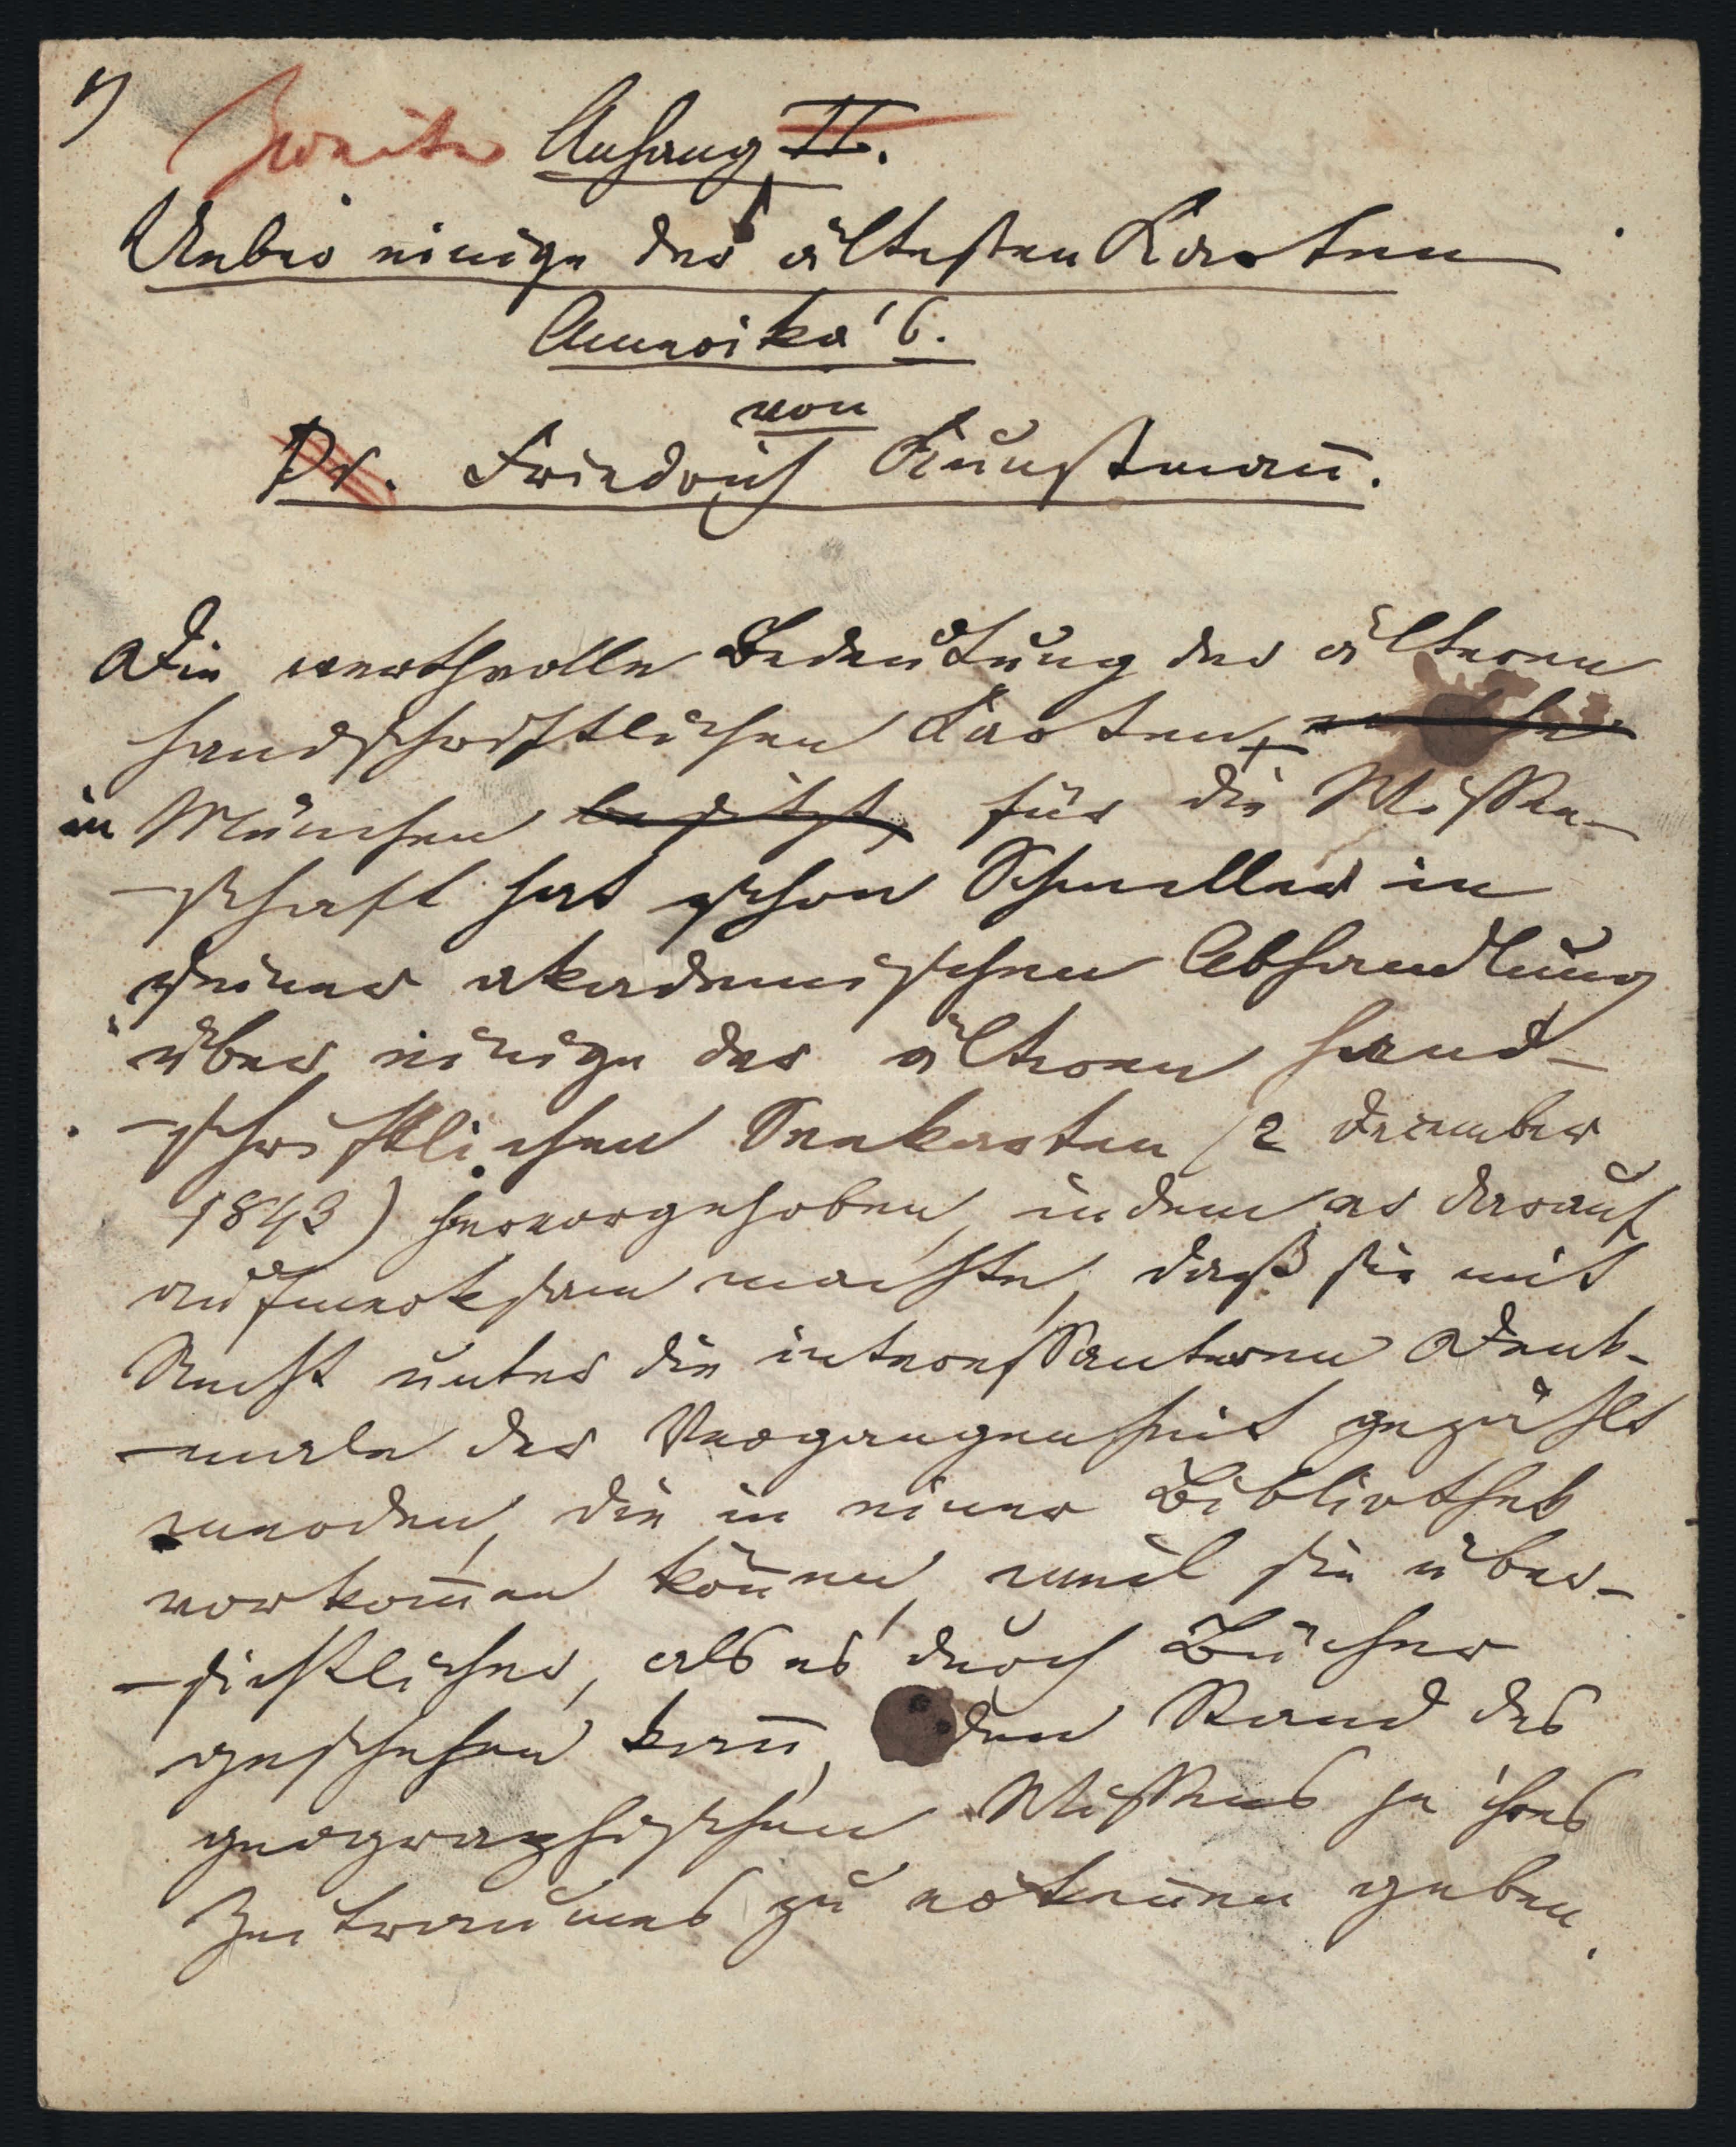 1)
Zweiter Anhang II.
Ueber einige der ältesten Karten
Amerika's.
von
Dr. Friedrich Kunstmann.
Die werthvolle Bedeutung der älteren
handschriftlichen Karten, welche
in München besitzt, für die Wissen-
-schaft hat schon Schmeller in
seiner akademischen Abhandlung
über einige der älteren hand-
-schriftlichen Seekarten (2 December
1843) hervorgehoben, indem er darauf
aufmerksam machte, daß sie mit
Recht unter die interessanteren Denk-
-male der Vergangenheit gezählt
werden, die in einer Bibliothek
vorkom̄en kön̄en, weil sie über-
-sichtlicher, als es durch Bücher
geschehen kan̄, den Stand des
geographischen Wissens je ihres
Zeitraumes zu erken̄en geben.